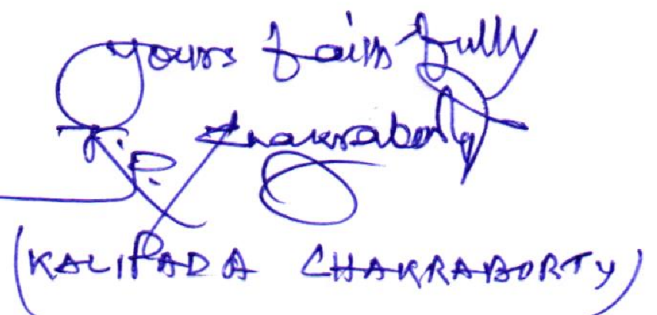 Yours faithfully
K.P. Chakraborty
(KALIPADA CHAKRABORTY)